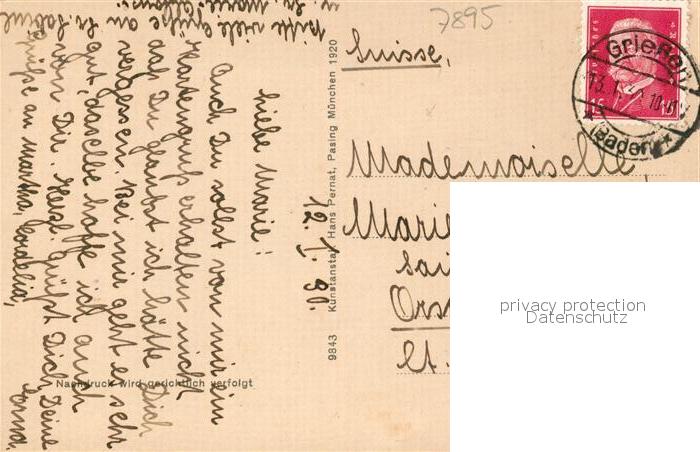 7895
Suisse,
Grießen
(Baden)
15
Mademoiselle,
Marie
Ors
Ct.
9843 Kunstanstalt Hans Pernat, Pasing München 1920
Nachdruck wird gerichtlich verfolgt
12. I. 31.
Liebe Marie!
Auch Du sollst von mir ein
Kartengruß erhalten nicht
daß Du glaubst ich hätte Dich
vergessen. Bei mir geht es sehr
gut, dasselbe hoffe ich auch
von Dir. Herzl. grüßt Dich Deine
Erna.
Grüße an Martha, Cordelia,
Bitte viele Grüße an Sr.
privacy protection
Datenschutz